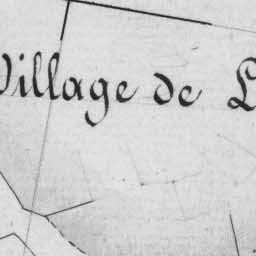 Village de L